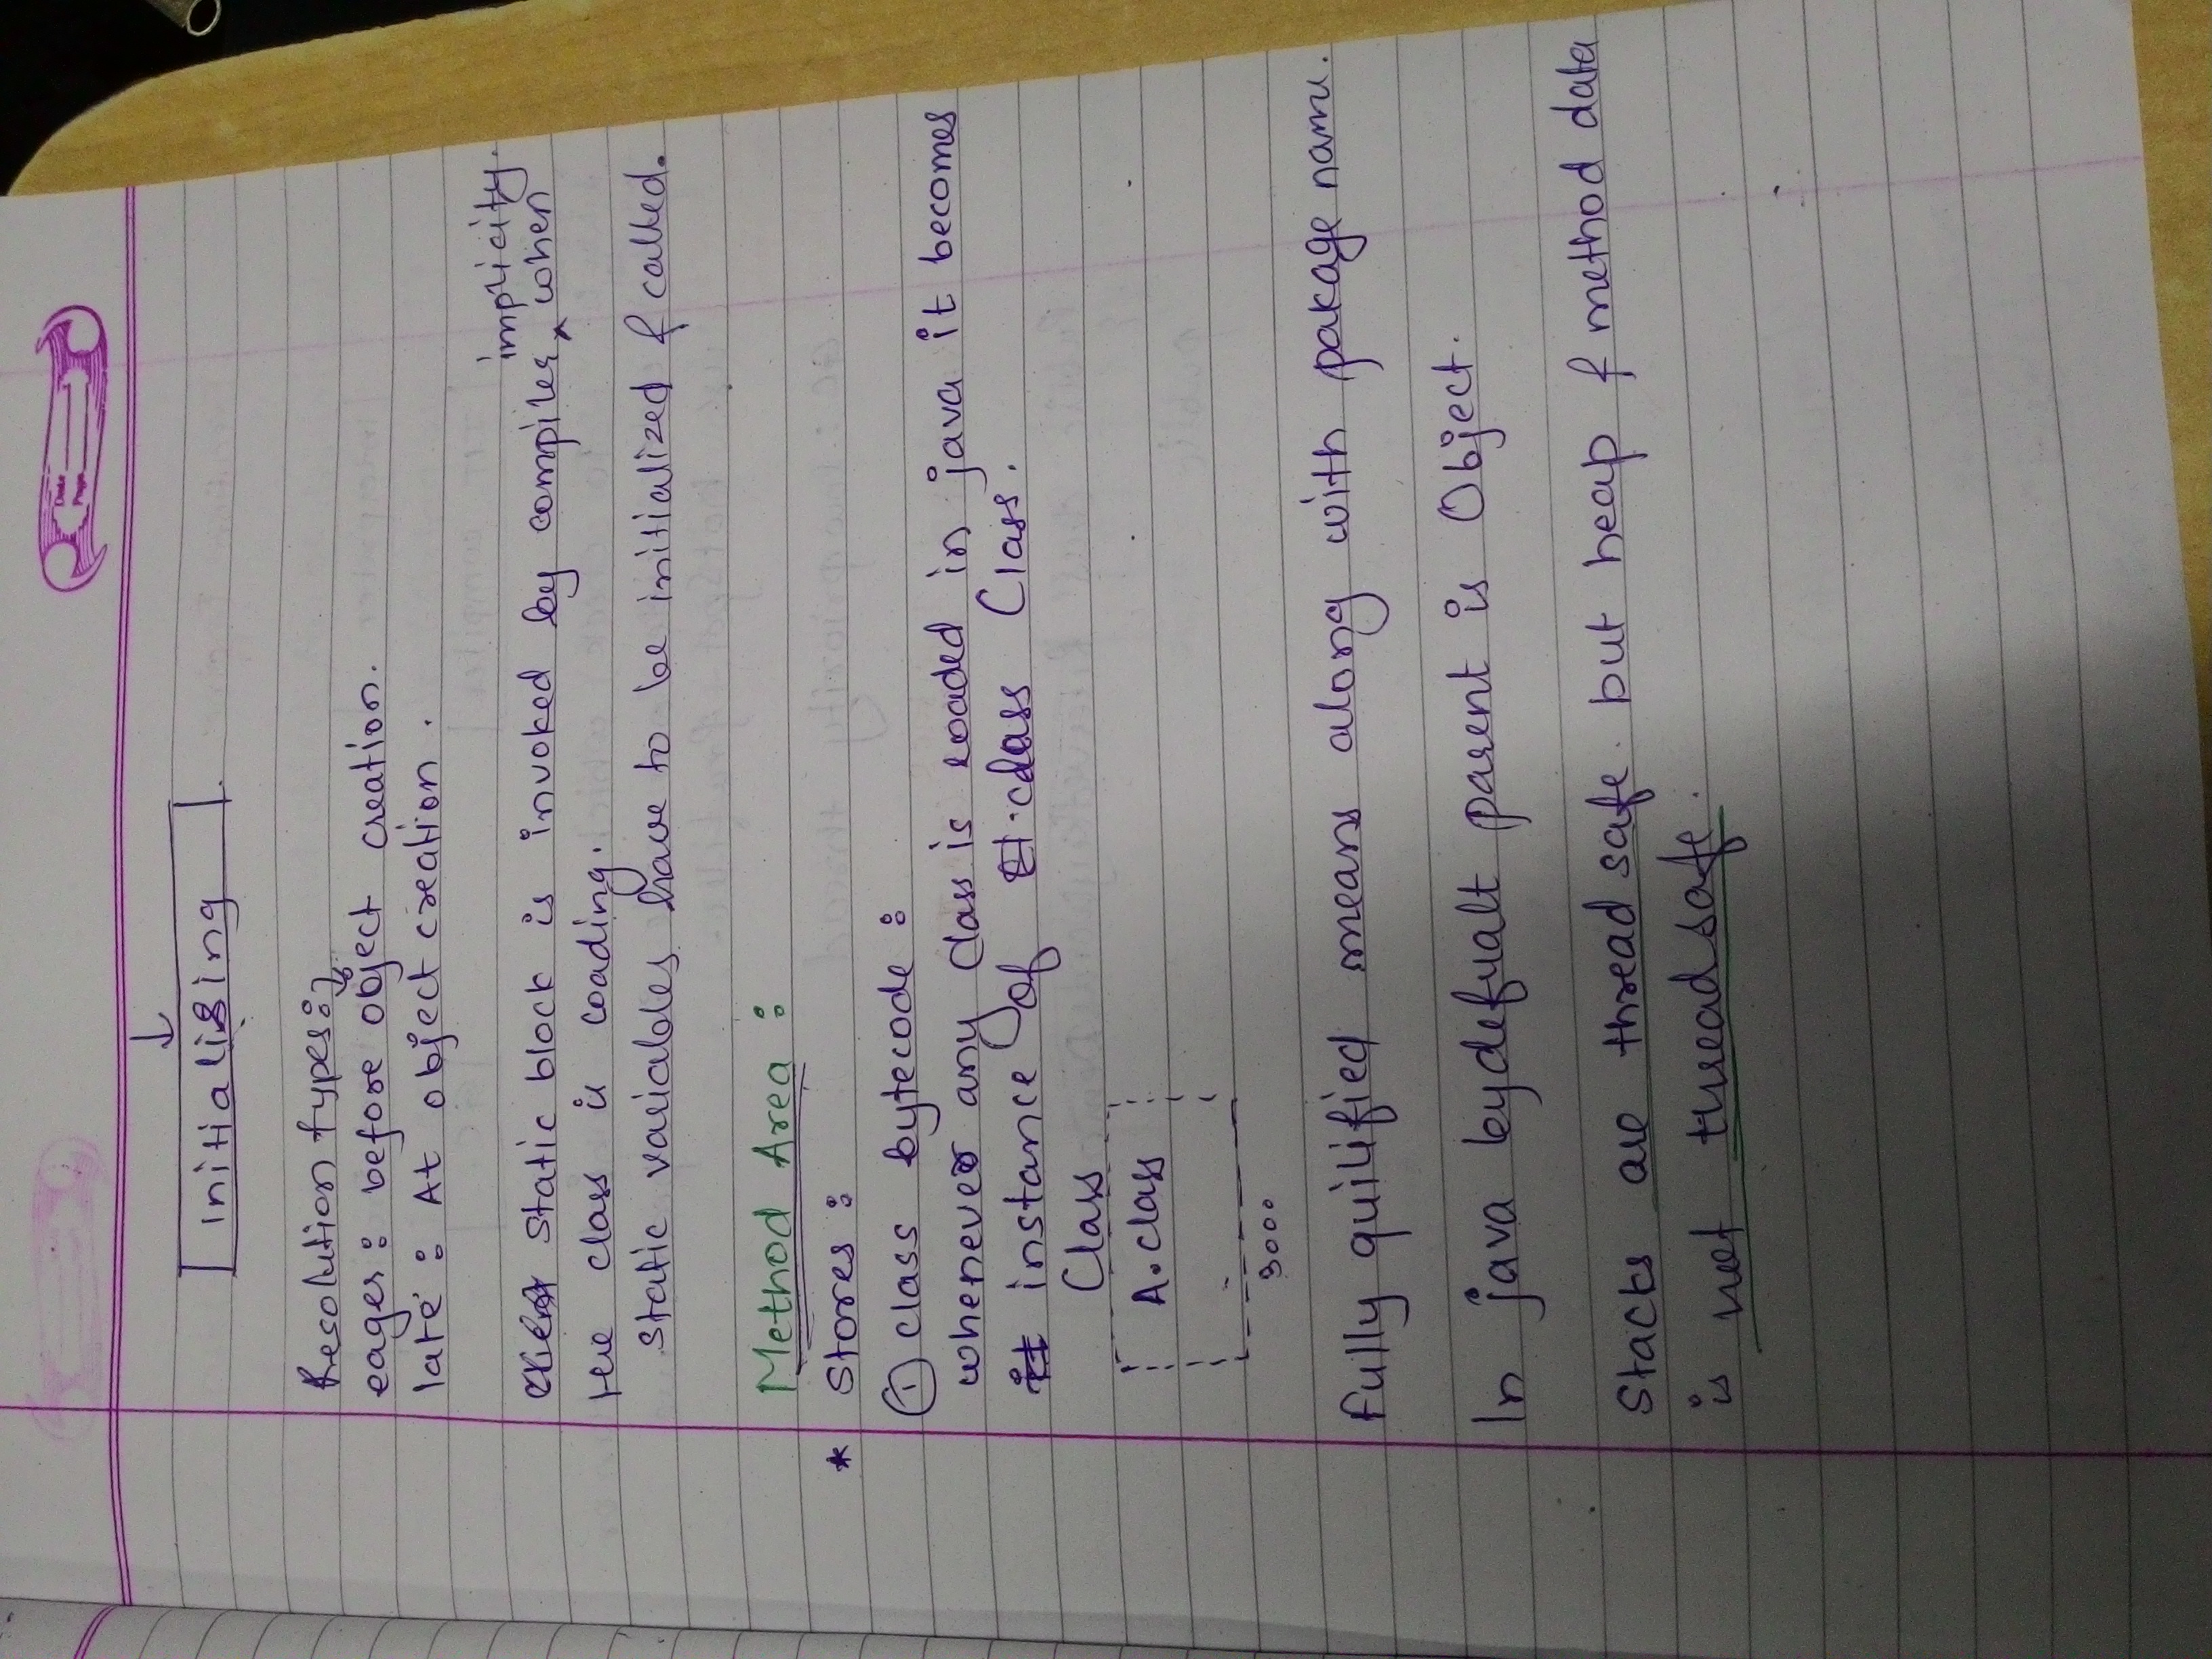 Date
Page
Initialising
Resolution types:
eager: before object creation.
late: At object creation.
implicity.
static block is invoked by compiler ^ when
the class is loading.
static variables have to be initialized & called.
Method Area:
* Stores:
① class bytecode:
whenever any class is loaded in java it becomes
instance of class Class.
Class
A.class
3000
Fully quilified means along with pakage name.
In java bydefualt parent is Object.
Stacks are thread safe. but heap & method data
is not thread safe.